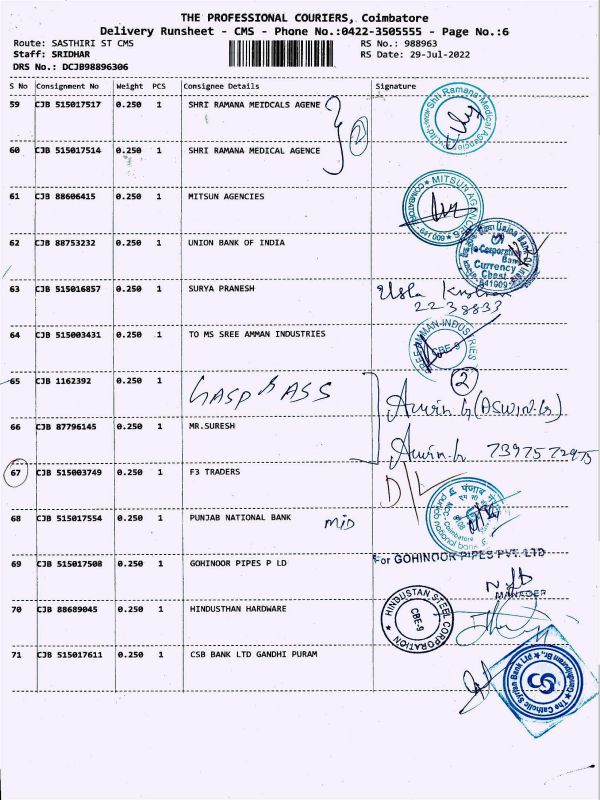 THE PROFESSIONAL COURIERS, Coimbatore
Delivery Runsheet - CMS - Phone No.:0422-3505555 - Page No.:6
Route: SASTHIRI ST CMS
RS No.: 988963
Staff: SRIDHAR
RS Date: 29-Jul-2022
DRS No.: DCJB98896306
S No Consignment No Weight PCS Consignee Details Signature
59 CJB 515017517 0.250 1 SHRI RAMANA MEIDCALS AGENE
Shri Ramana Medical Agencies
2
60 CJB 515017514 0.250 1 SHRI RAMANA MEDICAL AGENCE
61 CJB 88606415 0.250 1 MITSUN AGENCIES
MITSUN AGENCIES
COIMBATORE - 641 009
62 CJB 88753232 0.250 1 UNION BANK OF INDIA
Union Bank Of India
Corporation
Bank
Currency
Chest
641909
63 CJB 515016857 0.250 1 SURYA PRANESH
2238833
64 CJB 515003431 0.250 1 TO MS SREE AMMAN INDUSTRIES
SREE AMMAN INDUSTRIES
CBE-9
65 CJB 1162392 0.250 1
2
(ASWIN.G)
66 CJB 87796145 0.250 1 MR.SURESH
67 CJB 515003749 0.250 1 F3 TRADERS
D/L
68 CJB 515017554 0.250 1 PUNJAB NATIONAL BANK MID
पंजाब
punjab national bank
Coimbatore
69 CJB 515017508 0.250 1 GOHINOOR PIPES P LD
For GOHINOOR PIPES PVT. LTD
MANAGER
70 CJB 88689045 0.250 1 HINDUSTHAN HARDWARE
HINDUSTAN STEEL CORPORATION
CBE-9
71 CJB 515017611 0.250 1 CSB BANK LTD GANDHI PURAM
The Catholic Syrian Bank Ltd
Gandhipuram Br.